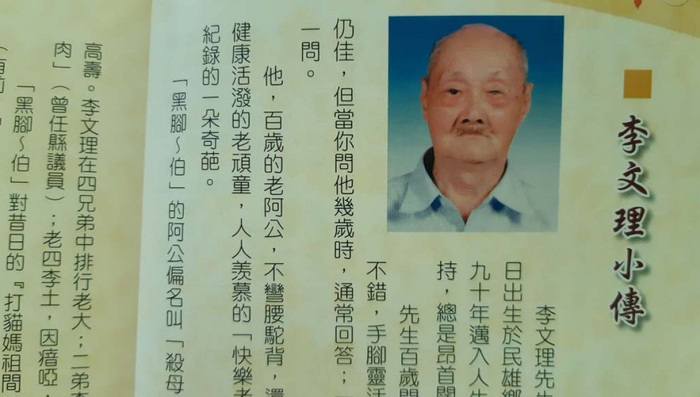 李文理小傳
李文理先生
日出生於民雄鄉
九十年邁入人生
持，總是昂首闊
先生百歲
不錯，手腳靈活
仍佳，但當你問他幾歲時，通常回答；
一問。
他，百歲的老阿公，不彎腰駝背，還
健康活潑的老頑童，人人羨慕的「快樂老
紀錄的一朵奇葩。
「黑腳～伯」的阿公偏名叫「殺母
高壽。李文理在四兄弟中排行老大；二弟李
肉」（曾任縣議員）；老四李土，因瘖啞，
「黑腳～伯」對昔日的『打貓媽祖間